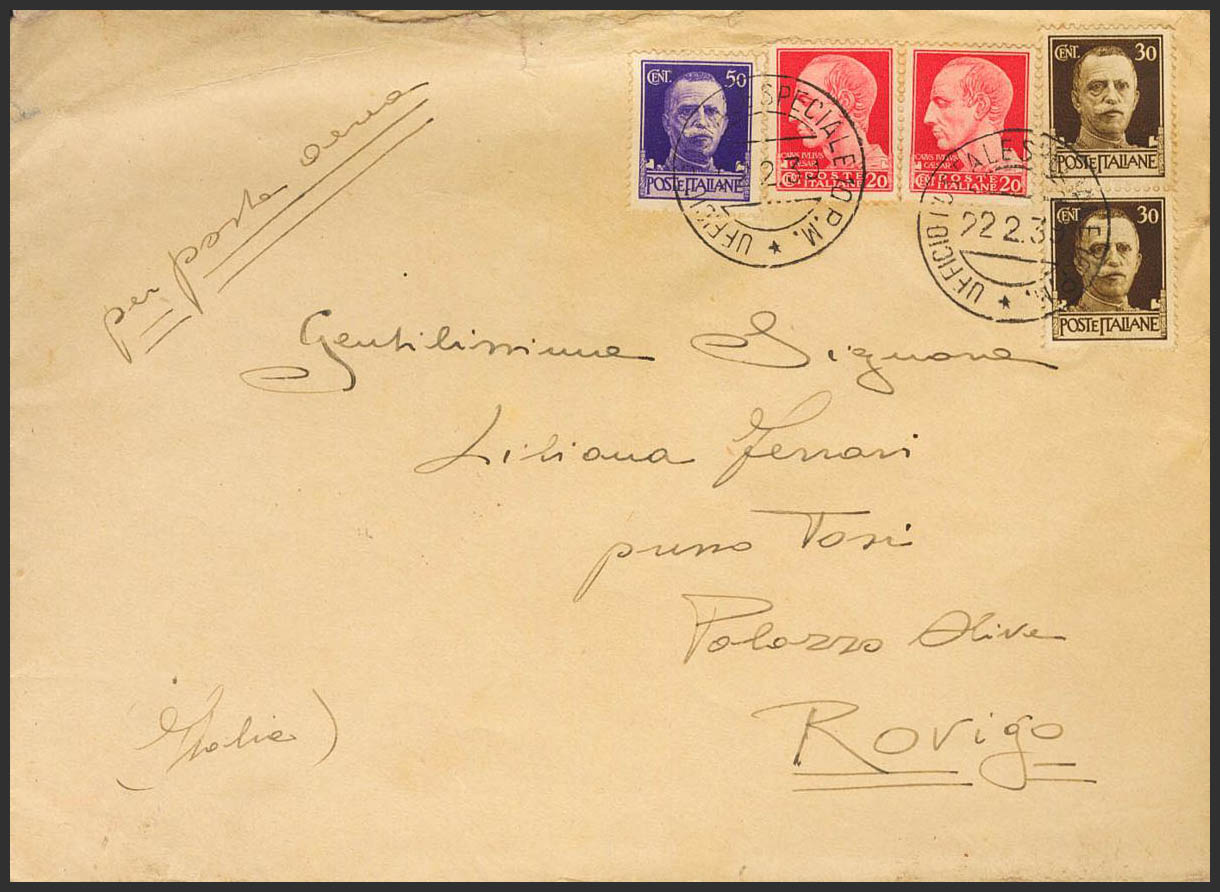 per posta aerea
CENT. 50
POSTE ITALIANE
CAIVS IVLIVS
CAESAR
CENT POSTE
ITALIANE 20
CAIVS IVLIVS
CAESAR
CENT POSTE
ITALIANE 20
CENT. 30
POSTE ITALIANE
CENT. 30
POSTE ITALIANE
UFFICIO SPECIALE P.M. ★
UFFICIO POSTALE SPECIALE P.M. ★
22 2.3
Gentilissima Signora
Liliana Ferrari
presso Tosi
Palazzo Olive
Rovigo
(Italia)